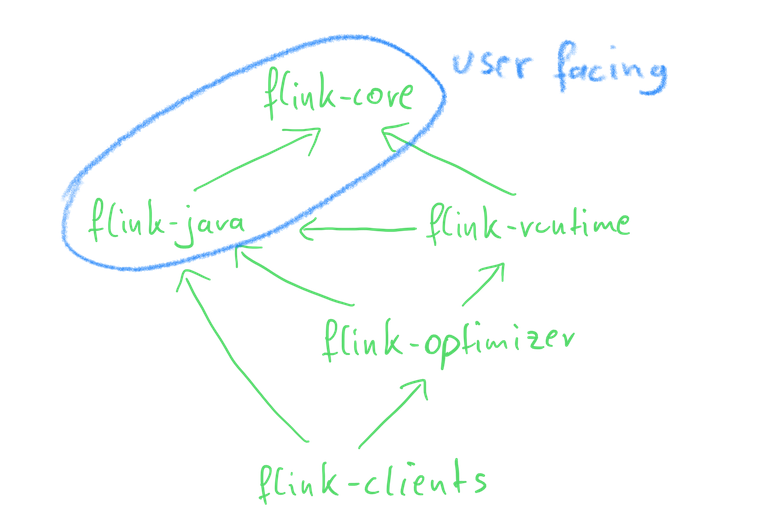 user facing
flink-core
flink-java
flink-runtime
flink-optimizer
flink-clients